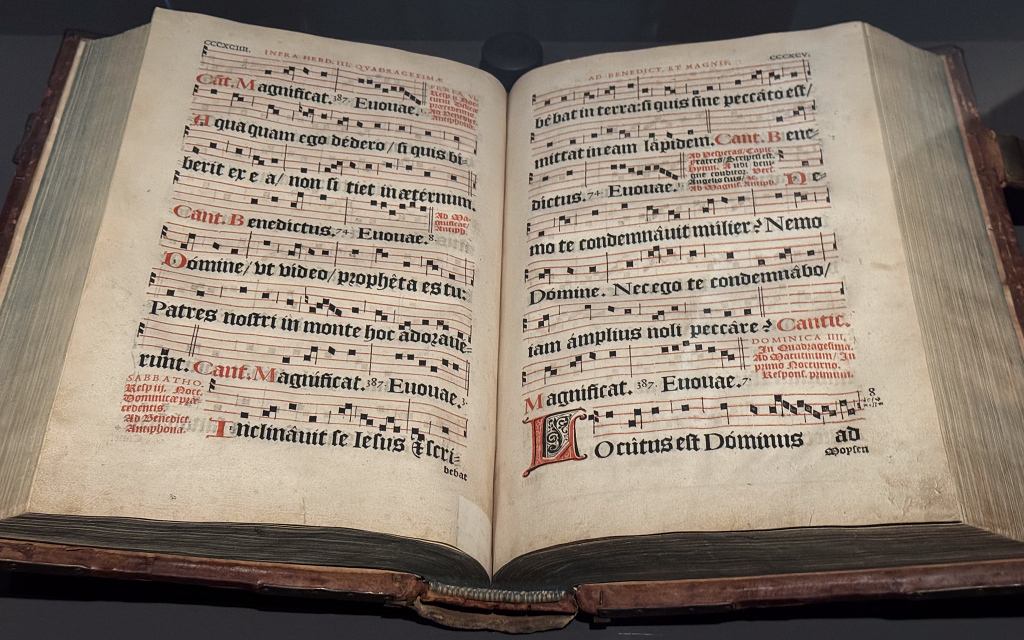 CCCXCIIII.
INFRA HEBD. III. QVADRAGESIMÆ
Cāt. Magnificat. 387. Euouae.
FERIA VI.
Ad Benedict.
Antiphona.
A qua quam ego dédero / si quis bi-
berit ex e a / non si tiet in ætérnum.
Cant. Benedictus. 74. Euouae. 8.
Ad Ma-
gnificat,
Antiph.
Dómine / vt video / prophêta es tu:
Patres nostri in monte hoc adoraue-
runt. Cant. Magníficat. 387. Euouae. 3.
SABBATHO,
Resp iii. Noct.
Dominicæ præ-
cedentis.
Ad Benedict.
Antiphona.
Inclináuit se Iesus & scri-
bebat
CCCXCV.
AD BENEDICT. ET MAGNIF.
bébat in terra: si quis sine peccáto est /
mittat in eam lápidem. Cant. Bene-
dictus. 74. Euouae.
Ad Vesperas, Capit.
Fratres, Scriptum est.
Hymn. Audi beni-
gne conditor. Vers.
Angelis suis, &c.
Ad Magnif. Antiph.
Ne-
mo te condemnáuit múlier? Nemo
Dómine. Nec ego te condemnâbo /
iam ámplius noli peccáre? Cantic.
Magníficat. 387. Euouae. 7.
DOMINICA IIII,
In Quadragesima.
Ad Matutinum, In
primo Nocturno.
Respons. primum.
LOcútus est Dóminus ad
Moysen